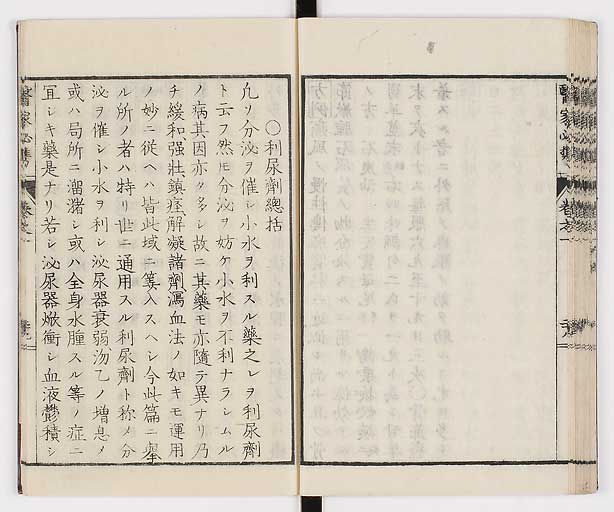 ○利尿劑總括
凡リ分泌ヲ催シ小水ヲ利スル藥之レヲ利尿劑
ト云フ然モ分泌ヲ妨ケ小水ヲ不利ナラシムル
ノ病其因亦タ多シ故ニ其藥モ亦隨テ異ナリ乃
チ緩和強壯鎮痙解凝諸劑瀉血法ノ如キモ運用
ノ妙ニ從ヘハ皆此域ニ算入スヘシ今此篇ニ舉
ル所ノ者ハ特リ世ニ通用スル利尿劑ト称ノ分
泌ヲ催シ小水ヲ利シ泌尿器衰弱沕乙ノ増息ノ
或ハ局所ニ溜瀦シ或ハ全身水腫スル等ノ症ニ
冝シキ藥是ナリ若シ泌尿器焮衝シ血液鬱積シ
醫家必携
卷之一